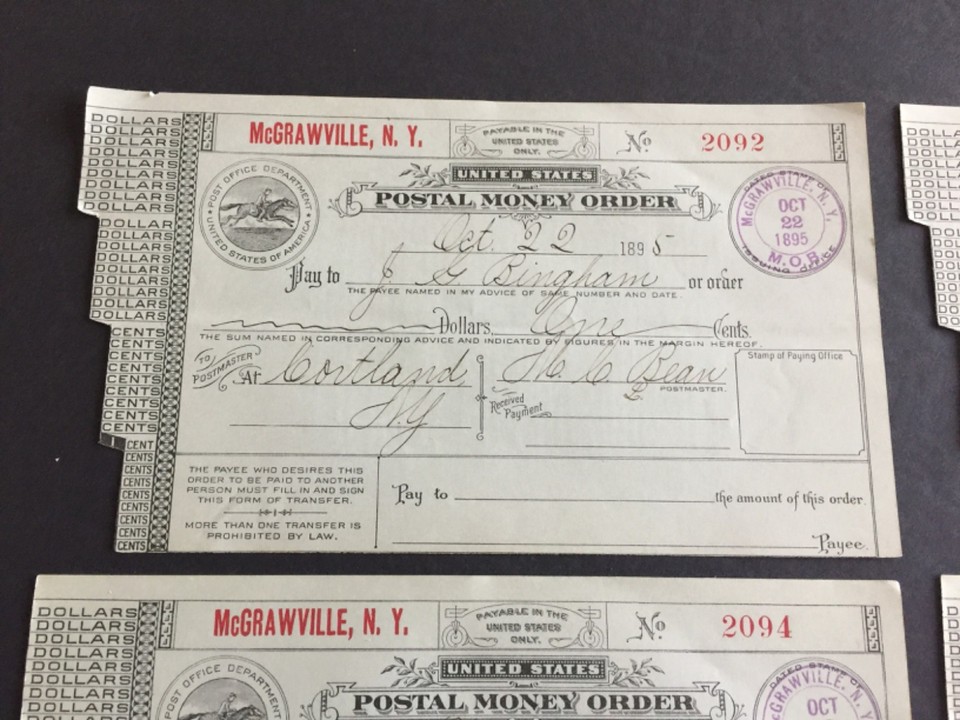 McGRAWVILLE, N. Y.
PAYABLE IN THE
UNITED STATES
ONLY.
No. 2092
UNITED STATES
POSTAL MONEY ORDER
POST OFFICE DEPARTMENT
UNITED STATES OF AMERICA
DATED STAMP OF
McGRAWVILLE, N. Y.
OCT
22
1895
M.O.B.
ISSUING OFFICE
Oct. 22 1895
Pay to J. G. Bingham or order
THE PAYEE NAMED IN MY ADVICE OF SAME NUMBER AND DATE.
Dollars, One Cents.
THE SUM NAMED IN CORRESPONDING ADVICE AND INDICATED BY FIGURES IN THE MARGIN HEREOF.
TO POSTMASTER
At Cortland
N.Y
POSTMASTER.
Received
Payment
Stamp of Paying Office
THE PAYEE WHO DESIRES THIS
ORDER TO BE PAID TO ANOTHER
PERSON MUST FILL IN AND SIGN
THIS FORM OF TRANSFER.
MORE THAN ONE TRANSFER IS
PROHIBITED BY LAW.
Pay to the amount of this order.
Payee.
DOLLARS
DOLLARS
DOLLARS
DOLLARS
DOLLARS
DOLLARS
DOLLAR
DOLLARS
DOLLARS
DOLLARS
DOLLARS
DOLLARS
DOLLARS
CENTS
CENTS
CENTS
CENTS
CENTS
CENTS
CENTS
CENTS
CENTS
1 CENT
CENTS
CENTS
CENTS
CENTS
CENTS
CENTS
CENTS
CENTS
McGRAWVILLE, N. Y.
PAYABLE IN THE
UNITED STATES
ONLY.
No. 2094
UNITED STATES
POSTAL MONEY ORDER
POST OFFICE DEPARTMENT
DATED STAMP
OCT
DOLLARS
DOLLARS
DOLLARS
DOLLARS
DOLLARS
DOLLARS
DOLLARS